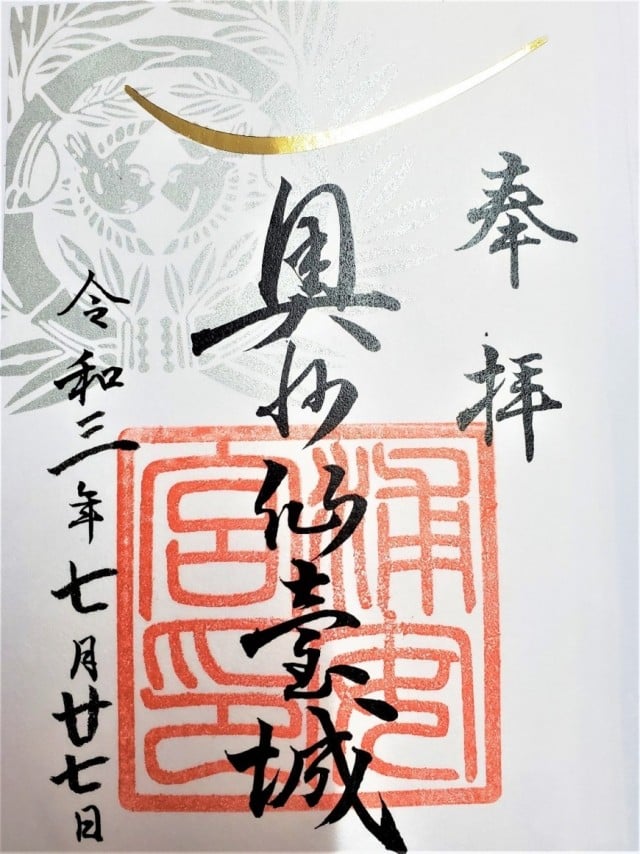 奉拝
奥州仙臺城
浦安
宮印
令和三年七月廿七日